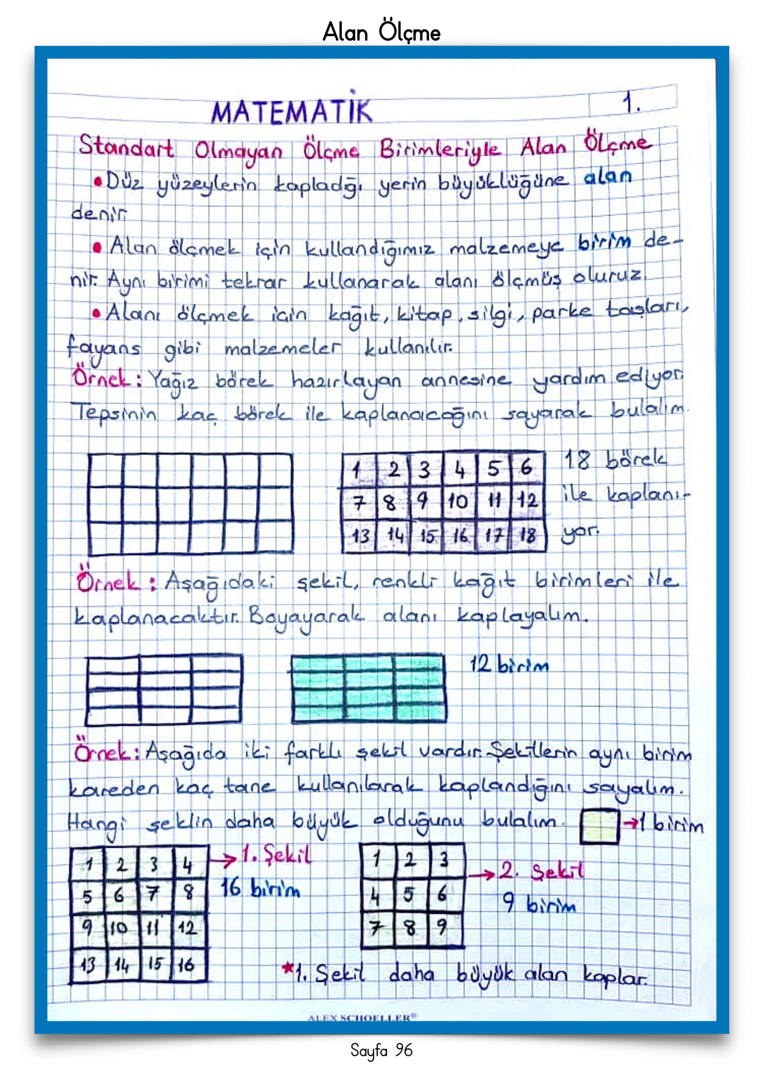 Alan Ölçme
MATEMATİK
1.
Standart Olmayan Ölçme Birimleriyle Alan Ölçme
• Düz yüzeylerin kapladığı yerin büyüklüğüne alan
denir.
• Alan ölçmek için kullandığımız malzemeye birim de-
nir. Aynı birimi tekrar kullanarak alanı ölçmüş oluruz.
• Alanı ölçmek için kağıt, kitap, silgi, parke taşları,
fayans gibi malzemeler kullanılır.
Örnek: Yağız börek hazırlayan annesine yardım ediyor.
Tepsinin kaç börek ile kaplanacağını sayarak bulalım.
1 2 3 4 5 6 18 börek
7 8 9 10 11 12 ile kaplanı-
13 14 15 16 17 18 yor.
Örnek: Aşağıdaki şekil, renkli kağıt birimleri ile
kaplanacaktır. Boyayarak alanı kaplayalım.
12 birim
Örnek: Aşağıda iki farklı şekil vardır. Şekillerin aynı birim
kareden kaç tane kullanılarak kaplandığını sayalım.
Hangi şeklin daha büyük olduğunu bulalım. →1 birim
1 2 3 4 →1. Şekil
5 6 7 8 16 birim
9 10 11 12
13 14 15 16
1 2 3 →2. Şekil
4 5 6 9 birim
7 8 9
*1. Şekil daha büyük alan kaplar.
ALEX SCHOELLER®
Sayfa 96